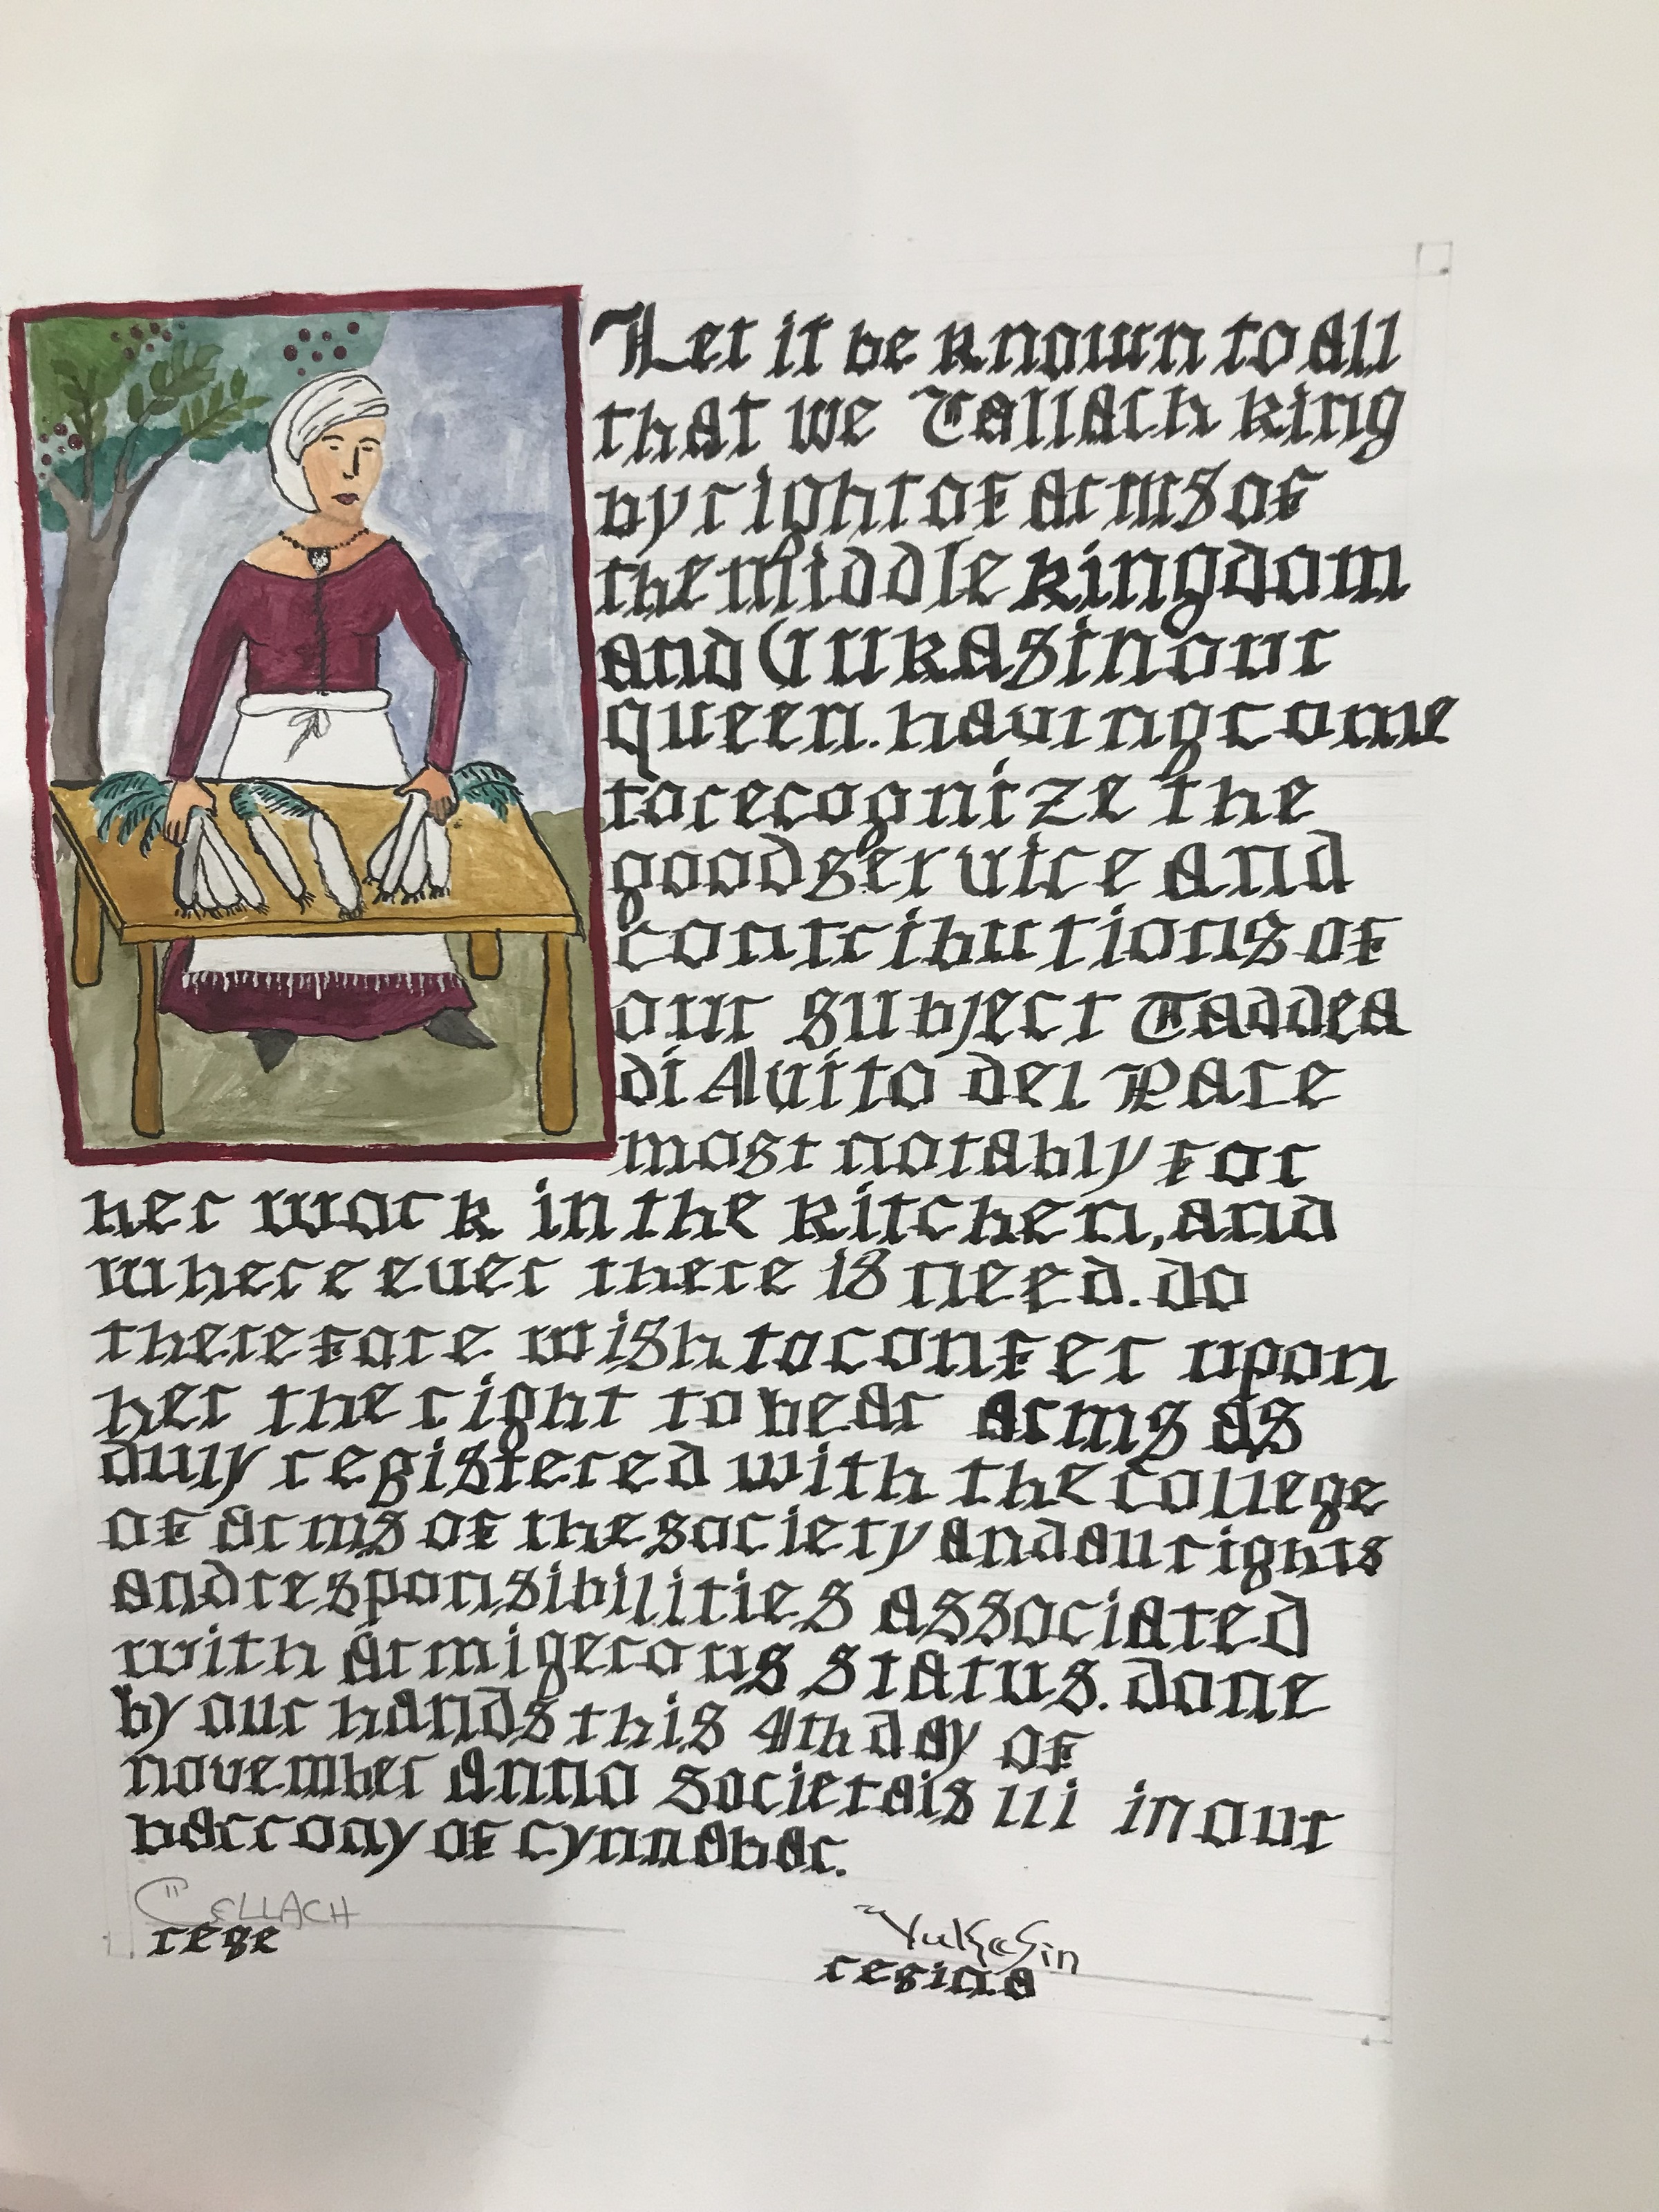 Let it be known to All
that we Callach king
by right of Arms of
the middle kingdom
and Yukasin our
queen. having come
to recognize the
good service and
contributions of
our subject Taddea
di Auito del Pace
most notably for
her work in the kitchen, and
where euer there is need. do
therefore wish to confer upon
her the right to bear arms as
duly registered with the college
of arms of the society and all rights
and responsibilities associated
with armigerous status. done
by our hands this 4th day of
november Anno Societais lii in our
barrony of cynnabar.
CELLACH
rege
YuKaSin
regina